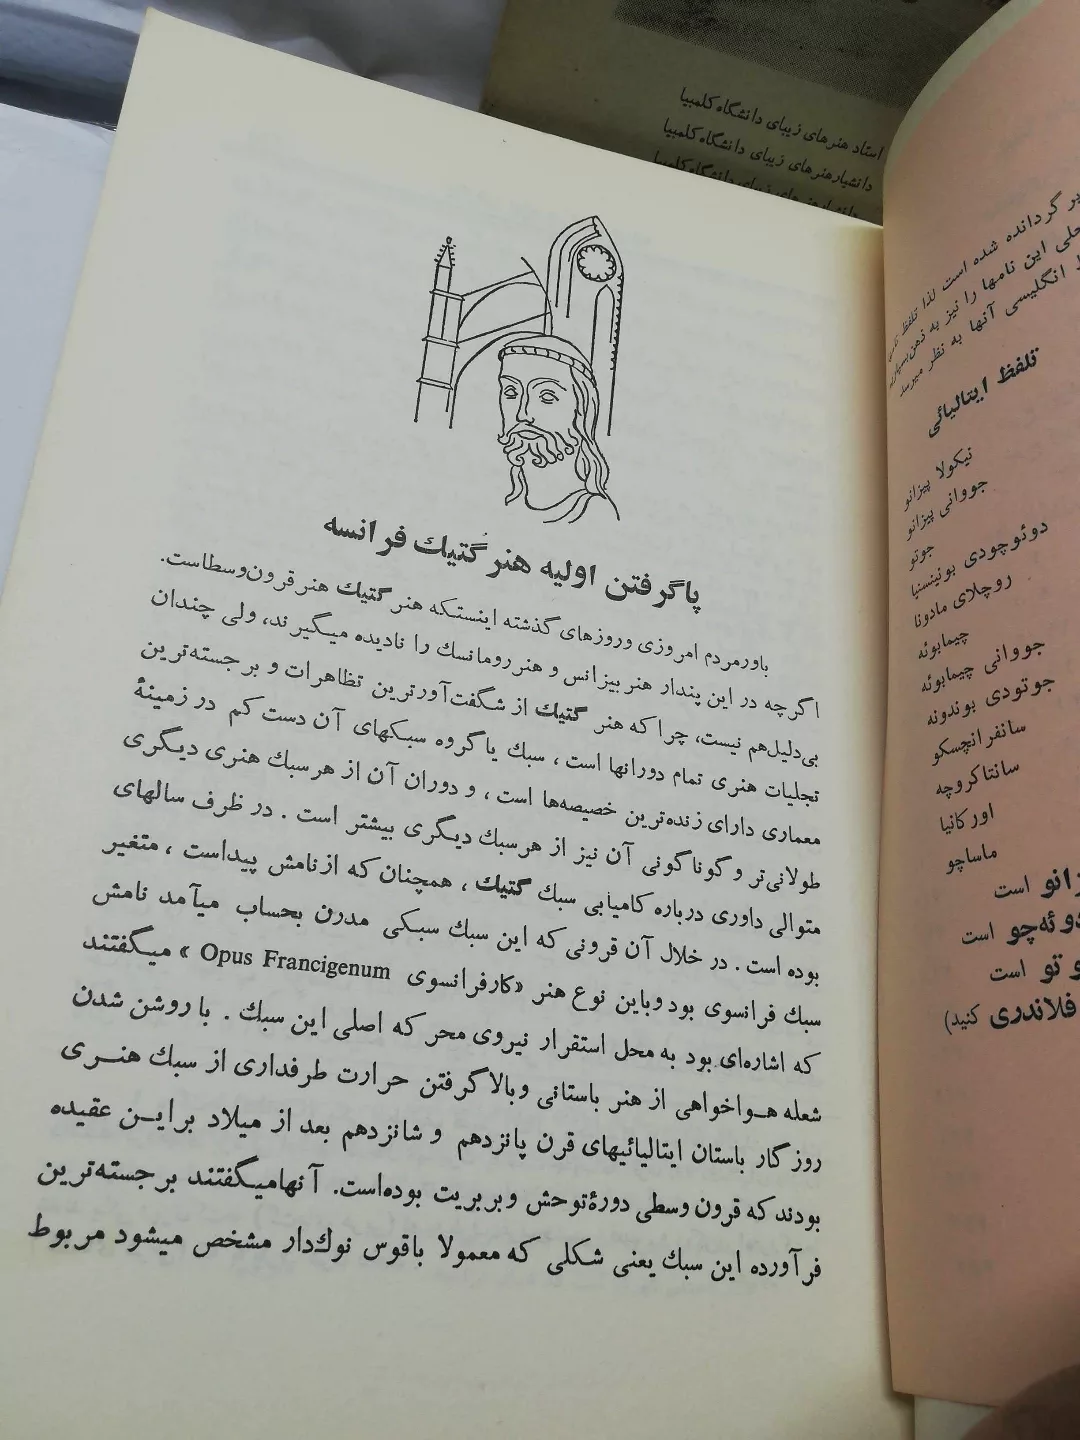 استاد هنرهای زیبای دانشگاه کلمبیا
دانشیار هنرهای زیبای دانشگاه کلمبیا
دانشیار هنرهای زیبای دانشگاه کلمبیا
گردانده شده است لذا تلفظ
این نامها را نیز به ذهن بسپارید
انگلیسی آنها به نظر میرسد
تلفظ ایتالیائی
نیکولا پیزانو
جووانی پیزانو
جوتو
دوئوچودی بونینسنیا
روچلای مادونا
چیمابوئه
جووانی چیمابوئه
جوتودی بوندونه
سانفرانچسکو
سانتاکروچه
اورکانیا
ماساچو
است
دوئه‌چو است
است
فلاندری کنید)
پاگرفتن اولیه هنر گُتیك فرانسه
باورمردم امروزی وروزهای گذشته اینستکه هنر گتیك هنر قرون‌وسطاست.
اگرچه در این پندار هنر بیزانس و هنر رومانسك را نادیده میگیرند، ولی چندان
بی‌دلیل‌هم نیست، چراکه هنر گتیك از شگفت‌آورترین تظاهرات و برجسته‌ترین
تجلیات هنری تمام دورانها است ، سبك یا گروه سبکهای آن دست کم در زمینهٔ
معماری دارای زنده‌ترین خصیصه‌ها است ، و دوران آن از هرسبك هنری دیگری
طولانی‌تر و گوناگونی آن نیز از هرسبك دیگری بیشتر است . در ظرف سالهای
متوالی داوری درباره کامیابی سبك گتیك ، همچنان که ازنامش پیداست ، متغیر
بوده است . در خلال آن قرونی که این سبك سبکی مدرن بحساب میآمد نامش
سبك فرانسوی بود وباین نوع هنر «کارفرانسوی Opus Francigenum » میگفتند
که اشاره‌ای بود به محل استقرار نیروی محر که اصلی این سبك . با روشن شدن
شعله هواخواهی از هنر باستانی وبالاگرفتن حرارت طرفداری از سبك هنری
روزگار باستان ایتالیائیهای قرن پانزدهم و شانزدهم بعد از میلاد براین عقیده
بودند که قرون وسطی دورهٔ توحش و بربریت بوده‌است. آنهامیگفتند برجسته‌ترین
فرآورده این سبك یعنی شکلی که معمولا باقوس نوك‌دار مشخص میشود مربوط